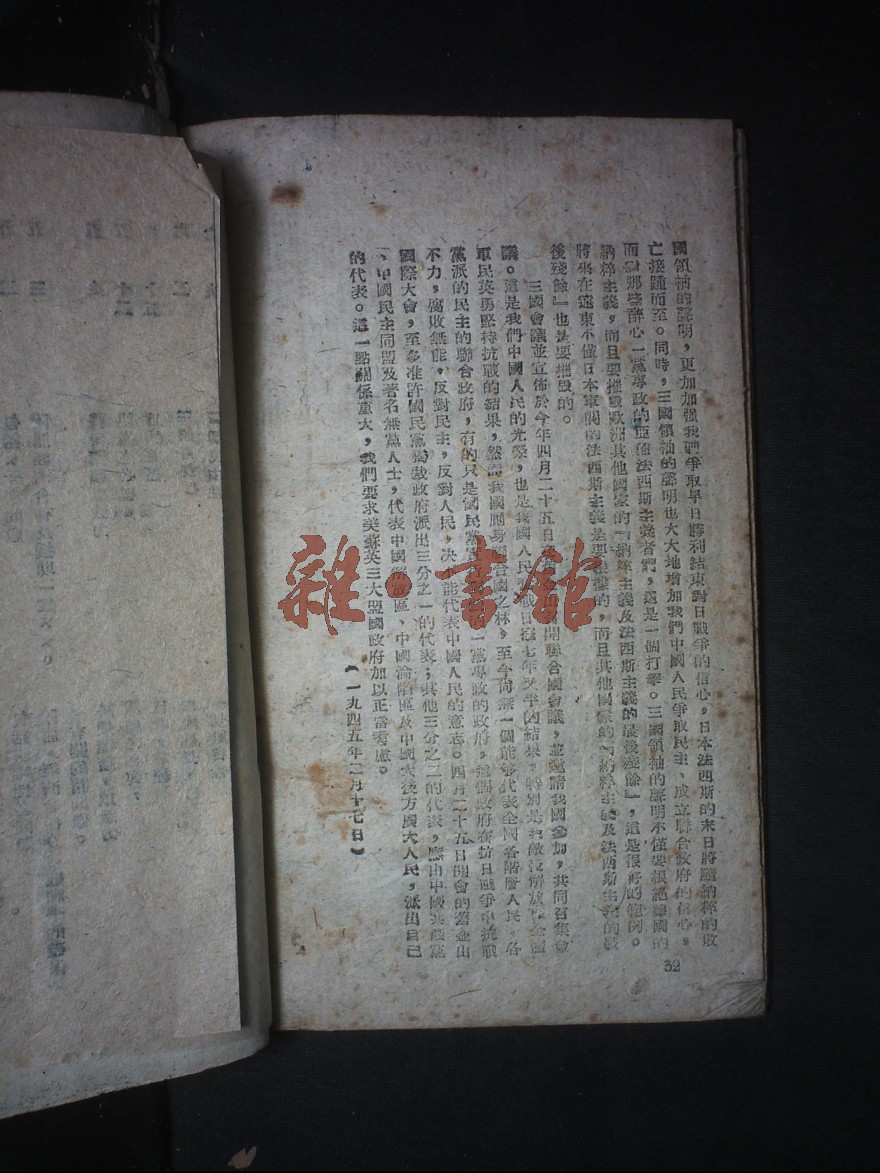 國領袖的聲明，更加加强我們爭取早日勝利結束對日戰爭的信心，日本法西斯的末日將隨納粹的敗
亡接踵而至。同時，三國領袖的聲明也大大地增加我們中國人民爭取民主、成立聯合政府的信心。
而對那些醉心一黨專政的亞洲法西斯主義者們，這是一個打擊。三國領袖的聲明不僅要根絕德國的
納粹主義，而且要摧毀歐洲其他國家的『納粹主義及法西斯主義的最後殘餘』，這是很好的範例。
將來在遠東不僅日本軍閥的法西斯主義是要摧毀的，而且其他國家的『納粹主義及法西斯主義的最
後殘餘』也是要摧毀的。
三國會議並宣佈於今年四月二十五日 山 開聯合國會議，並邀請我國參加，共同召集會
議。這是我們中國人民的光榮，也是我國人民 戰日寇七年又半的結果，特別是我敵後解放 全體
軍民英勇堅持抗戰的結果，然而我國側身 合國之林，至今尚無一個能够代表全國各階層人民，各
黨派的民主的聯合政府，有的只是國民黨 一黨專政的政府，這個政府在抗日戰爭中抗戰
不力，腐敗無能，反對民主，反對人民，决不能代表中國人民的意志。四月二十五日開會的舊金山
國際大會，至多准許國民黨獨裁政府派出三分之一的代表；其他三分之二的代表，應由中國共產黨
、中國民主同盟及著名無黨人士，代表中國解放區、中國淪陷區及中國大後方廣大人民，派出自己
的代表。這一點關係重大，我們要求美蘇英三大盟國政府加以正當考慮。
（一九四五年二月十七日）
32
雜·書館